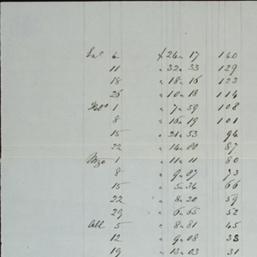 Jan 4 $ 26 " 17 140
11 " 32 " 33 129
18 " 18 " 16 122
25 " 10 " 18 114
Feb 1 " 7 " 39 108
8 " 15 " 19 101
15 " 21 " 53 94
22 " 14 " 80 87
1 " 11 " 11 80
8 " 9 " 07 73
15 66
22 " 8 " 20 59
29 " 6 " 65 52
5 " 8 " 81 45
12 " 9 " 08 38
19 " 13 " 03 31